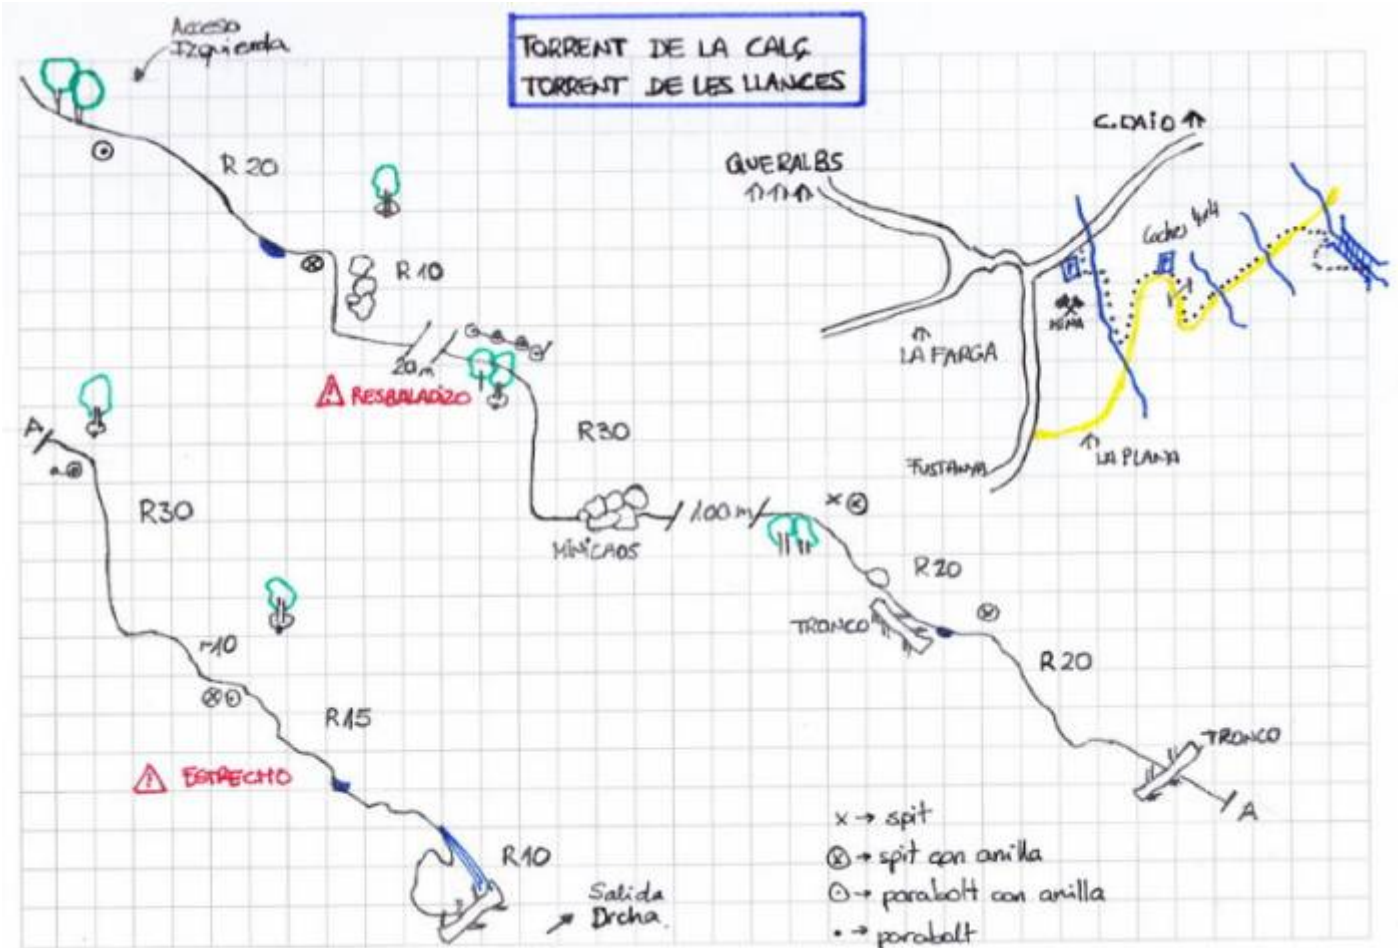 TORRENT DE LA CALÇ
TORRENT DE LES LLANCES
Acceso
Izquierda
R 20
R 10
20m
RESBALADIZO
R30
MINICAOS
100 m
R 20
TRONCO
R 20
TRONCO
A
A
R30
r10
R15
ESTRECHO
R10
Salida
Drcha.
QUERALBS
C. DAIO
Coches 4x4
P
P
MINA
LA FARGA
FUSTANYA
LA PLANA
x → spit
→ spit con anilla
→ parabolt con anilla
• → parabolt